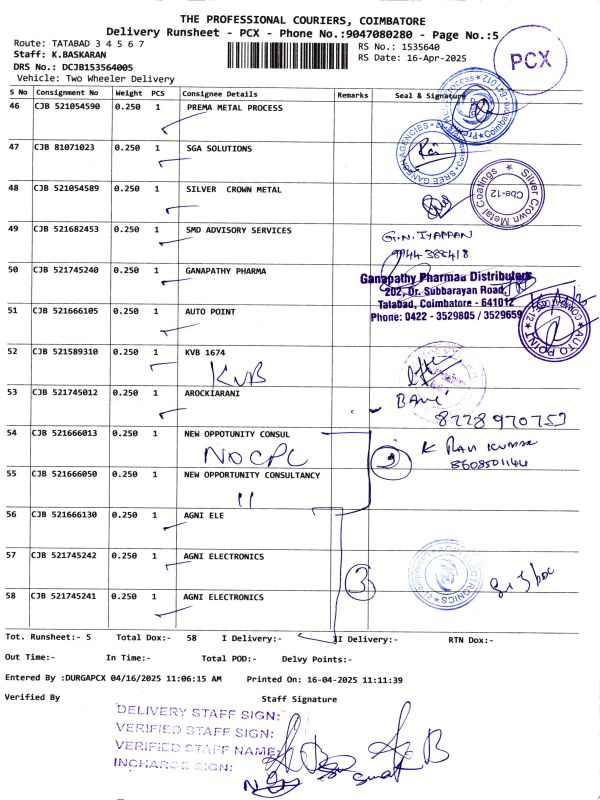 THE PROFESSIONAL COURIERS, COIMBATORE
Delivery Runsheet - PCX - Phone No.:9047080280 - Page No.:5
Route: TATABAD 3 4 5 6 7
RS No.: 1535640
PCX
Staff: K.BASKARAN
RS Date: 16-Apr-2025
DRS No.: DCJB153564005
Vehicle: Two Wheeler Delivery
S No Consignment No Weight PCS Consignee Details Remarks Seal & Signature
46 CJB 521054590 0.250 1 PREMA METAL PROCESS
47 CJB 81071023 0.250 1 SGA SOLUTIONS
48 CJB 521054589 0.250 1 SILVER CROWN METAL
Silver Crown Metal Coatings ★ Cbe-12
49 CJB 521682453 0.250 1 SMD ADVISORY SERVICES
G.N. IYAPPAN
50 CJB 521745240 0.250 1 GANAPATHY PHARMA
Ganapathy Pharmaa Distributors
202, Dr. Subbarayan Road,
Tatabad, Coimbatore - 641012
Phone: 0422 - 3529805 / 3529659
51 CJB 521666105 0.250 1 AUTO POINT
★ AUTO POINT ★
52 CJB 521589310 0.250 1 KVB 1674
KVB
53 CJB 521745012 0.250 1 AROCKIARANI
8778970753
54 CJB 521666013 0.250 1 NEW OPPOTUNITY CONSUL
NOCPL
K RAVI KUMAR
55 CJB 521666050 0.250 1 NEW OPPORTUNITY CONSULTANCY
11
56 CJB 521666130 0.250 1 AGNI ELE
57 CJB 521745242 0.250 1 AGNI ELECTRONICS
3
58 CJB 521745241 0.250 1 AGNI ELECTRONICS
Tot. Runsheet:- 5 Total Dox:- 58 I Delivery:- II Delivery:- RTN Dox:-
Out Time:- In Time:- Total POD:- Delvy Points:-
Entered By :DURGAPCX 04/16/2025 11:06:15 AM Printed On: 16-04-2025 11:11:39
Verified By Staff Signature
DELIVERY STAFF SIGN:
VERIFIED STAFF SIGN:
VERIFIED STAFF NAME:
INCHARGE SIGN: